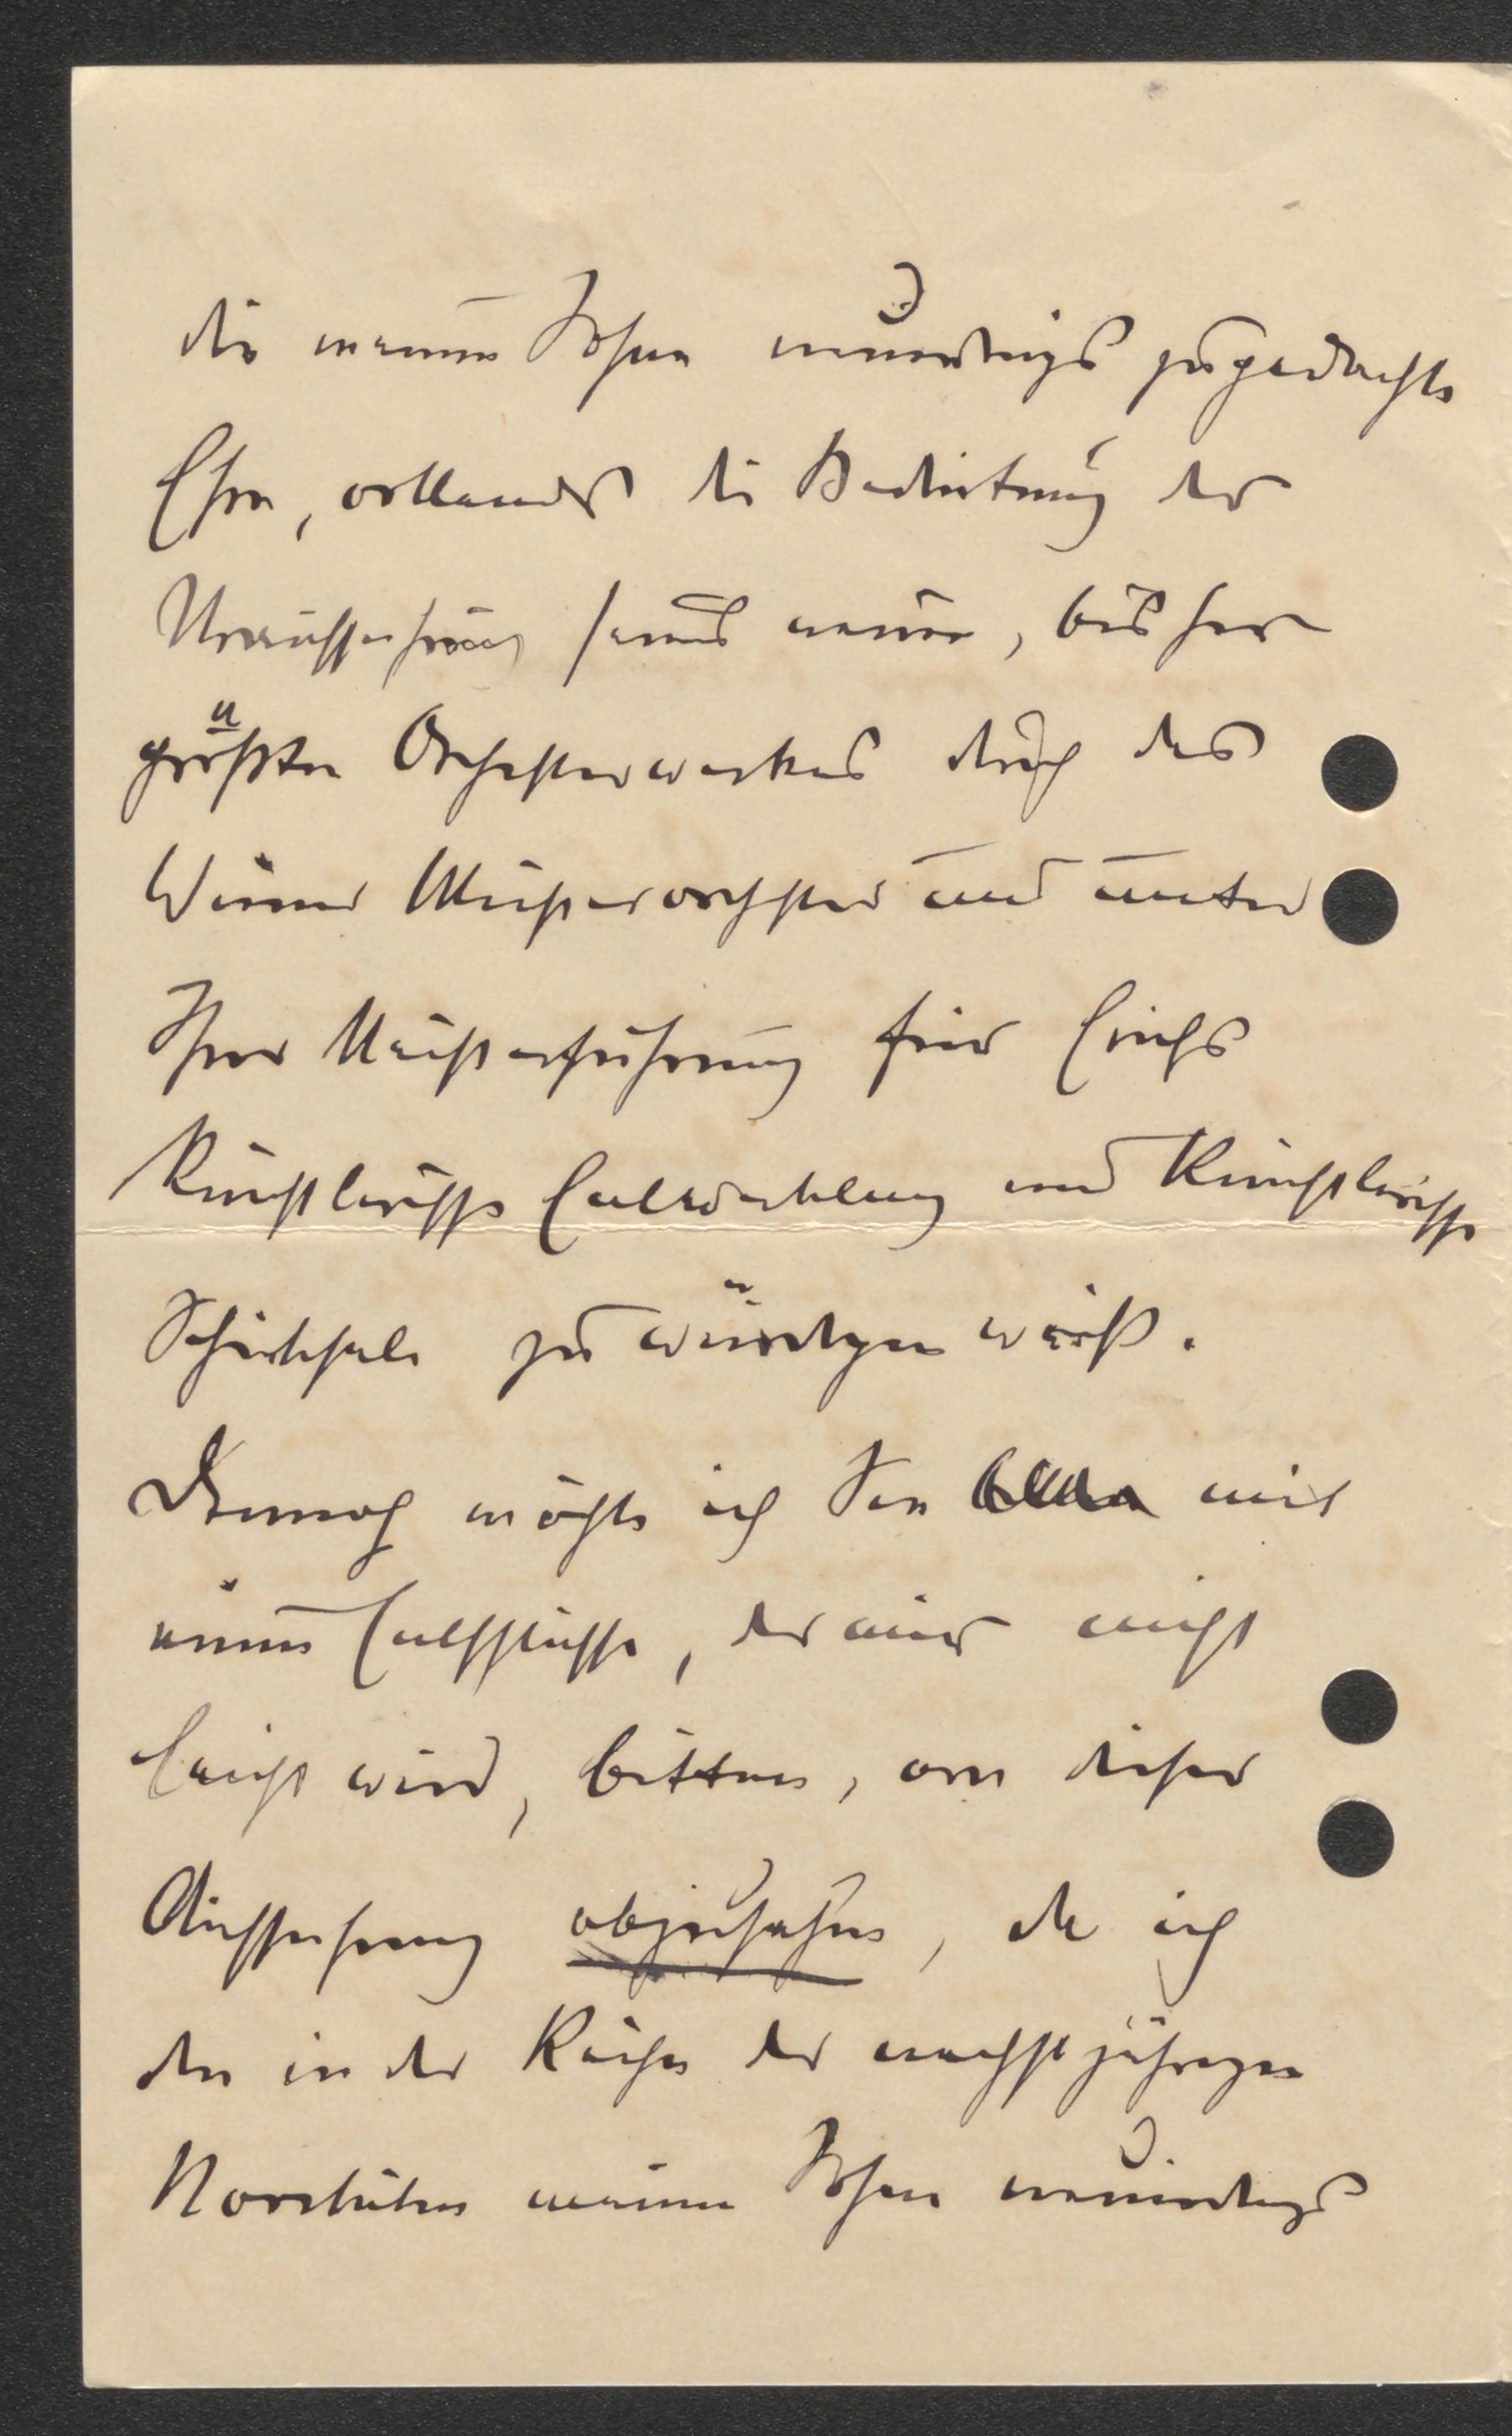 die meinem Sohne neuerdings zugedachte
Ehre, vollends die Bedeutung der
Uraufführung seines neuen, bisher
größten Orchesterwerkes durch das
Wiener Meisterorchester und unter
Ihrer Meisterführung für Erichs
künstlerische Entwicklung und künstlerische
Schicksale zu würdigen weiß.
Dennoch möchte ich Sie mit
einem Entschlusse, der mir nicht
leicht wird, bitten, von dieser
Aufführung abzusehen, da ich
den in der Reihe der nächstjährigen
Novitäten meinem Sohne neuerdings